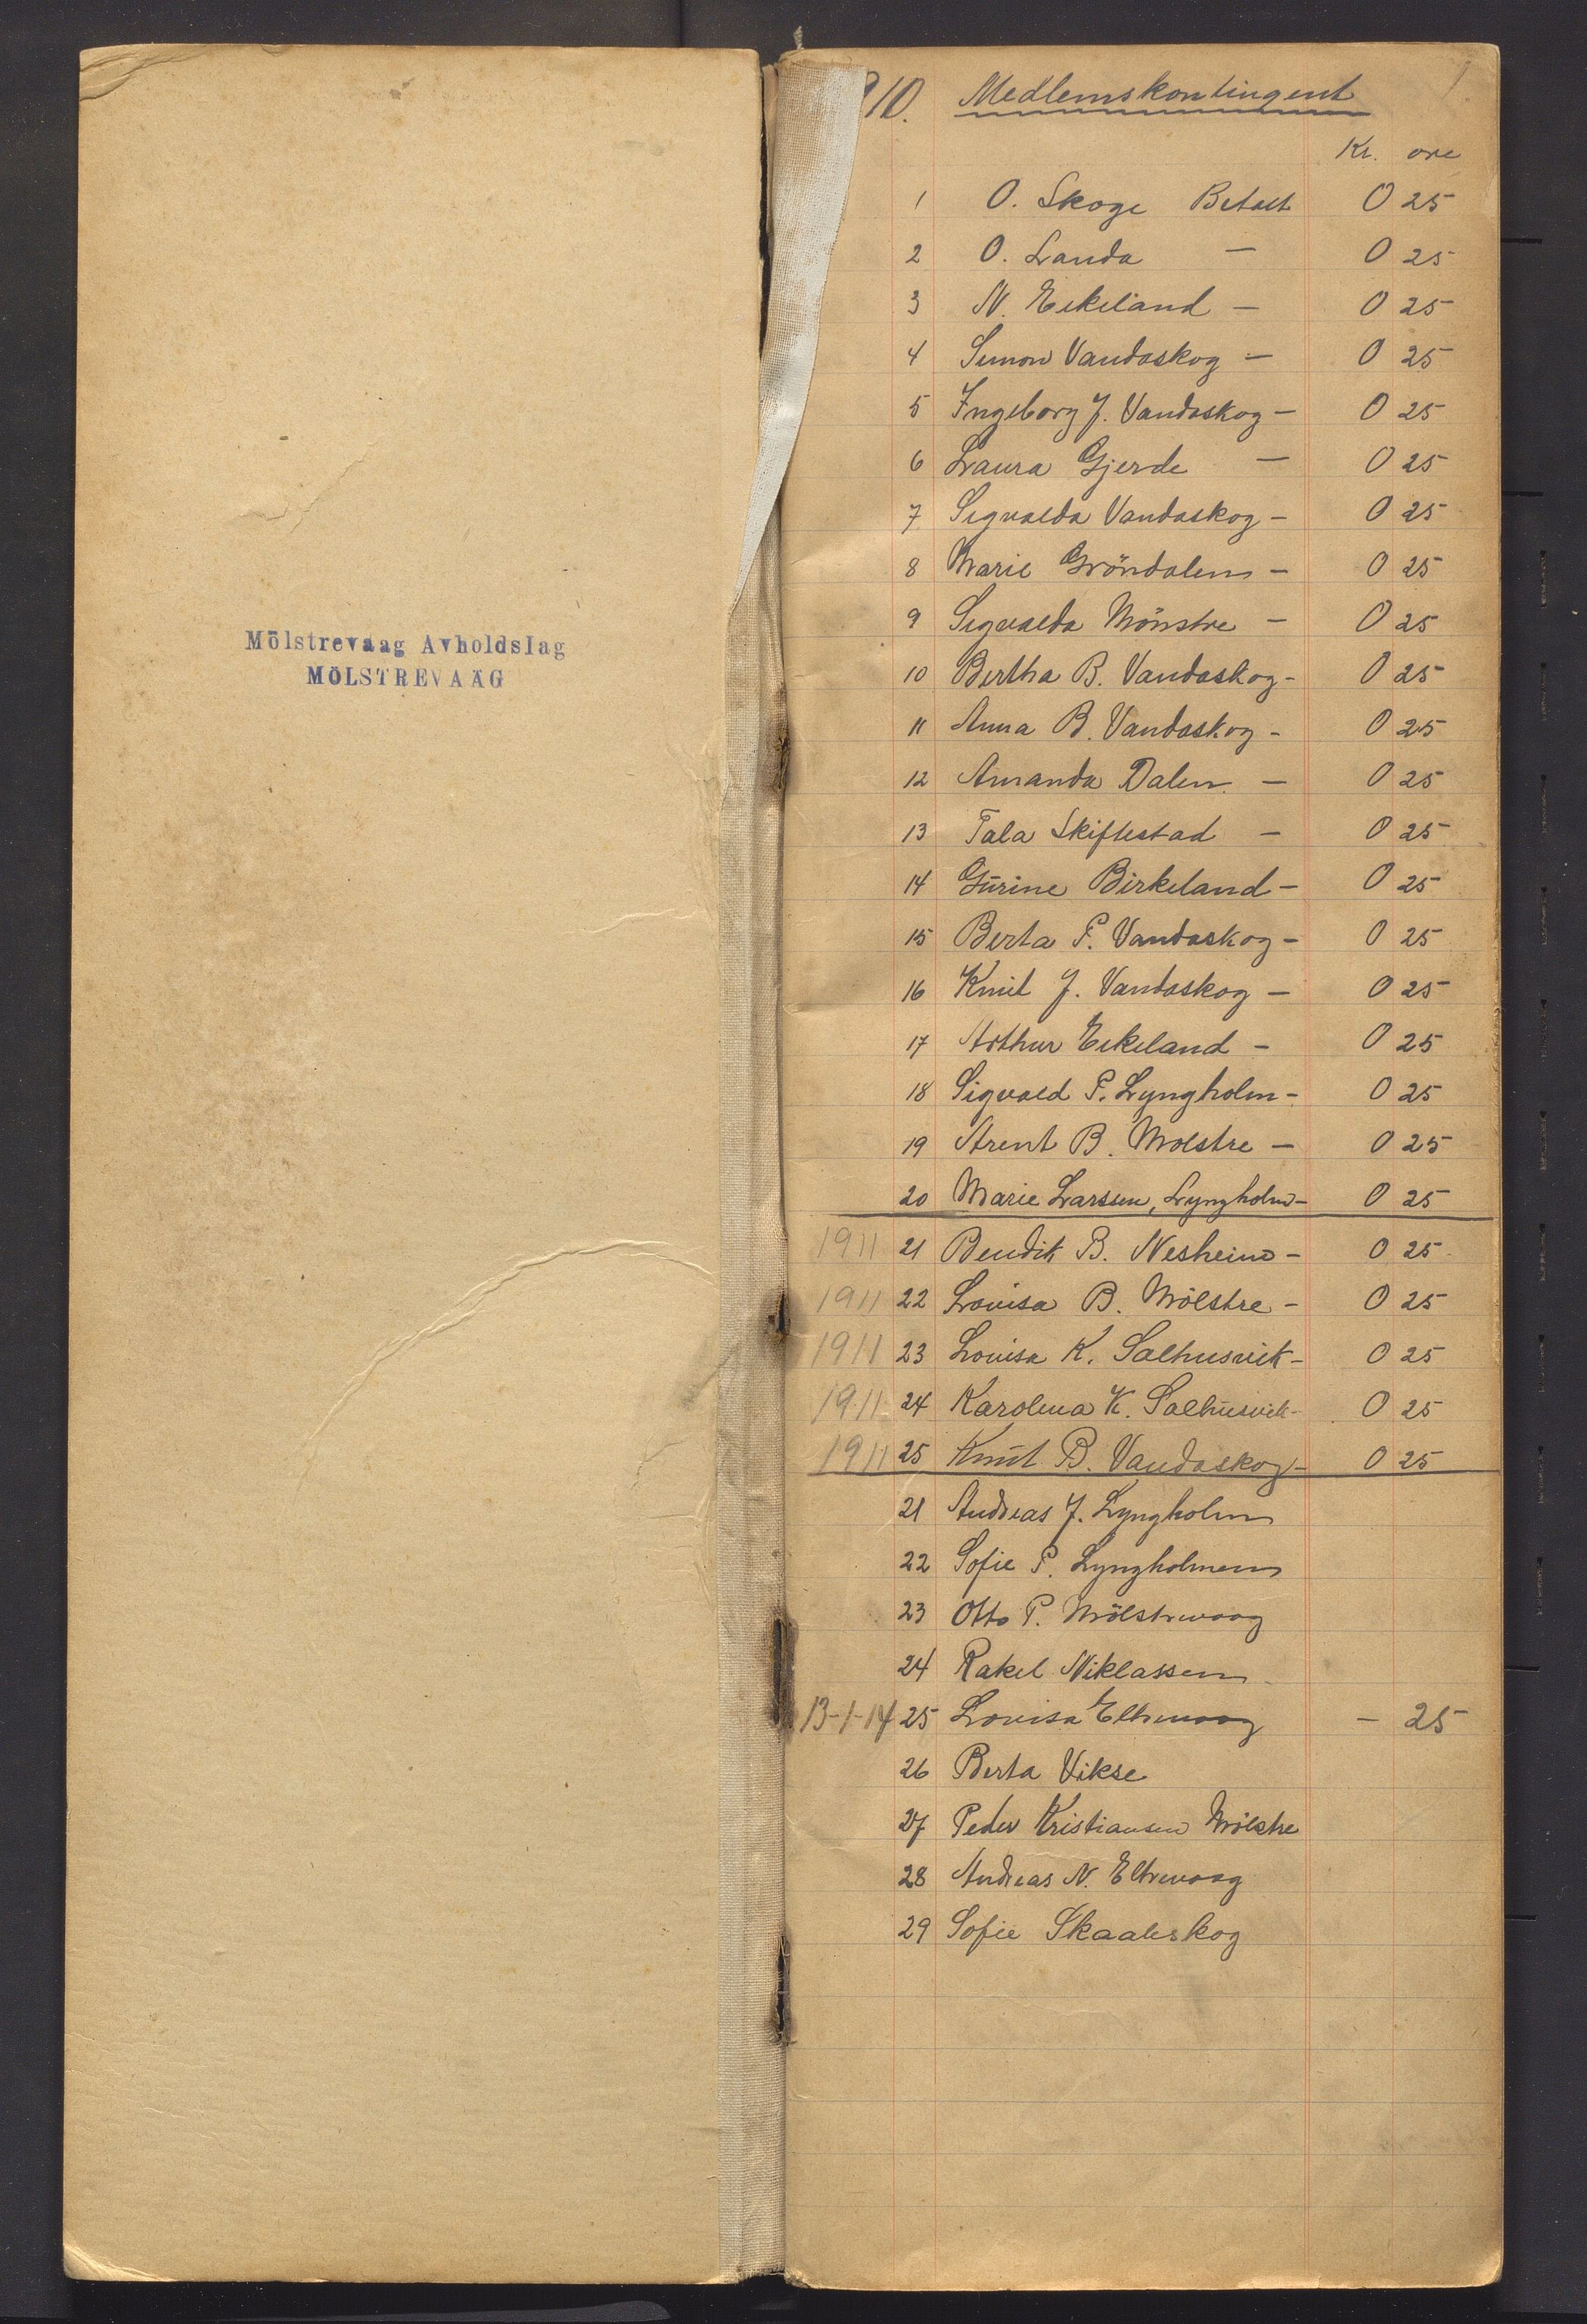 Mölstrevaag Avholdslag
MÖLSTREVAÄG
1
910. Medlemskontingent
Kr. øre
1 O. Skoge Betalt 0 25
2 O. Landa — 0 25
3 N. Eikeland — 0 25
4 Simon Vandaskog — 0 25
5 Ingeborg J. Vandaskog — 0 25
6 Laura Gjerde — 0 25
7 Sigvalda Vandaskog — 0 25
8 Marie Gröndalen — 0 25
9 Sigvalda Mönstre — 0 25
10 Bertha B. Vandaskog - 0 25
11 Anna B. Vandaskog - 0 25
12 Amanda Dalen — 0 25
13 Tala Skiftestad — 0 25
14 Gurine Birkeland — 0 25
15 Berta P. Vandaskog — 0 25
16 Knut J. Vandaskog — 0 25
17 Arthur Eikeland — 0 25
18 Sigvald P. Lyngholm - 0 25
19 Arent B. Molstre — 0 25
20 Marie Larssen, Lyngholm - 0 25
1911 21 Bendik B. Nesheim - 0 25
1911 22 Lovisa B. Mölstre - 0 25
1911 23 Lovisa K. Salhusvik - 0 25
1911 24 Karolina K. Salhusvik - 0 25
1911 25 Knut B. Vandaskog - 0 25
21 Andreas J. Lyngholm
22 Sofie P. Lyngholmen
23 Otto P. Mölstrevaag
24 Rakel Niklassen
13-1-14 25 Lovisa Eltrevaag — 25
26 Berta Vikse
27 Peder Kristiansen Mölstre
28 Andreas N. Eltrevaag
29 Sofie Skaaleskog